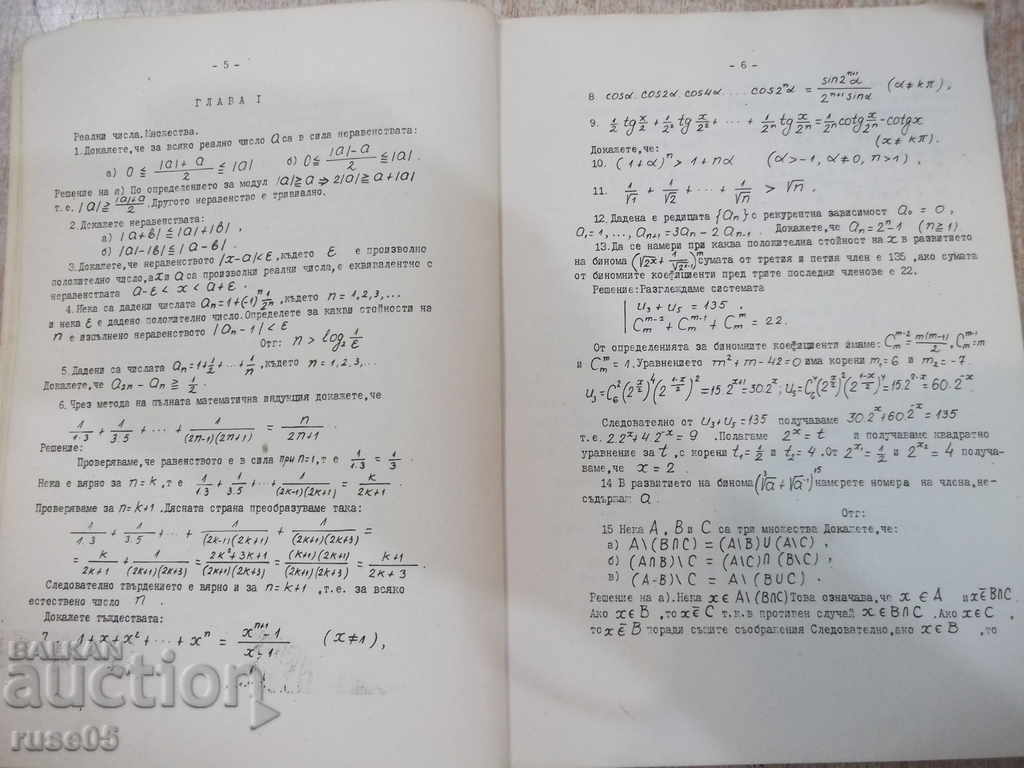 - 5 -
ГЛАВА I
Реални числа. Множества.
1. Докажете, че за всяко реално число a са в сила неравенствата:
а) 0 ≤ (|a|+a)/2 ≤ |a|   б) 0 ≤ (|a|-a)/2 ≤ |a|.
Решение на а) По определението за модул |a| ≧ a ⇒ 2|a| ≧ a+|a|
т.е. |a| ≧ (|a|+a)/2. Другото неравенство е тривиално.
2. Докажете неравенствата:
а) |a+b| ≦ |a|+|b|,
б) ||a|-|b|| ≦ |a-b|.
3. Докажете, че неравенството |x-a|<ε, където ε е произволно
положително число, а x и a са произволни реални числа, е еквивалентно с
неравенствата a-ε < x < a+ε.
4. Нека са дадени числата aₙ=1+(-1)ⁿ 1/2ⁿ, където n=1,2,3,...
и нека ε е дадено положително число. Определете за какви стойности на
n е изпълнено неравенството |aₙ-1|<ε
Отг: n > log₂ 1/ε
5. Дадени са числата aₙ=1+1/2+...+1/n, където n=1,2,3,...
Докажете, че a₂ₙ - aₙ ≧ 1/2.
6. Чрез метода на пълната математична индукция докажете, че
1/1.3 + 1/3.5 + ... + 1/(2n-1)(2n+1) = n/2n+1
Решение:
Проверяваме, че равенството е в сила при n=1, т е 1/1.3 = 1/3.
Нека е вярно за n=k, т е 1/1.3 + 1/3.5 + ... + 1/(2k-1)(2k+1) = k/2k+1
Проверяваме за n=k+1. Дясната страна преобразуваме така:
1/1.3 + 1/3.5 + ... + 1/(2k-1)(2k+1) + 1/(2k+1)(2k+3) =
= k/2k+1 + 1/(2k+1)(2k+3) = 2k²+3k+1/(2k+1)(2k+3) = (k+1)(2k+1)/(2k+1)(2k+3) = k+1/2k+3
Следователно твърдението е вярно и за n=k+1, т.е. за всяко
естествено число n.
Докажете тъждествата:
7. 1+x+x²+...+xⁿ = (xⁿ⁺¹-1)/(x-1)   (x≠1),
- 6 -
8. cosα.cos2α.cos4α....cos2ⁿα = sin2ⁿ⁺¹α/2ⁿ⁺¹sinα   (α≠kπ),
9. 1/2 tg x/2 + 1/2² tg x/2² + ... + 1/2ⁿ tg x/2ⁿ = 1/2ⁿ cotg x/2ⁿ - cotg x
(x≠kπ).
Докажете, че:
10. (1+α)ⁿ > 1+nα   (α>-1, α≠0, n>1),
11. 1/√1 + 1/√2 + ... + 1/√n > √n.
12. Дадена е редицата {aₙ} с рекурентна зависимост a₀ = 0,
a₁=1,..., aₙ₊₁=3aₙ-2aₙ₋₁. Докажете, че aₙ=2ⁿ-1 (n≧1)
13. Да се намери при каква положителна стойност на x в развитието
на бинома (√2ˣ + 1/√2ˣ⁻¹)ᵐ сумата от третия и петия член е 135, ако сумата
от биномните коефициенти пред трите последни членове е 22.
Решение: Разглеждаме системата
u₃+u₅=135.
Cₘᵐ⁻² + Cₘᵐ⁻¹ + Cₘᵐ = 22.
От определенията за биномните коефициенти имаме: Cₘᵐ⁻²=m(m-1)/2, Cₘᵐ⁻¹=m
и Cₘᵐ=1. Уравнението m²+m-42=0 има корени m₁=6 и m₂=-7.
u₃=C₆²(2^(x/2))⁴(2^((1-x)/2))²=15.2ˣ⁺¹=30.2ˣ; u₅=C₆⁴(2^(x/2))²(2^((1-x)/2))⁴=15.2²⁻ˣ=60.2⁻ˣ
Следователно от u₃+u₅=135 получаваме 30.2ˣ+60.2⁻ˣ=135
т.е. 2.2ˣ+4.2⁻ˣ=9. Полагаме 2ˣ=t и получаваме квадратно
уравнение за t, с корени t₁=1/2 и t₂=4. От 2ˣ¹=1/2 и 2ˣ²=4 получа-
ваме, че x=2.
14 В развитието на бинома (³√a+√a⁻¹)¹⁵ намерете номера на члена, не-
съдържащ a.
Отг:
15 Нека A, B и C са три множества Докажете, че:
а) A\(B∩C) = (A\B)∪(A\C),
б) (A∩B)\C = (A\C)∩(B\C),
в) (A-B)\C = A\(B∪C).
Решение на а). Нека x∈A\(B∩C) Това означава, че x∈A и x∉B∩C.
Ако x∈B, то x∉C т.к. в противен случай x∈B∩C. Ако x∈C,
то x∉B поради същите съображения Следователно, ако x∈B, то
BALKAN
auction
ruse05